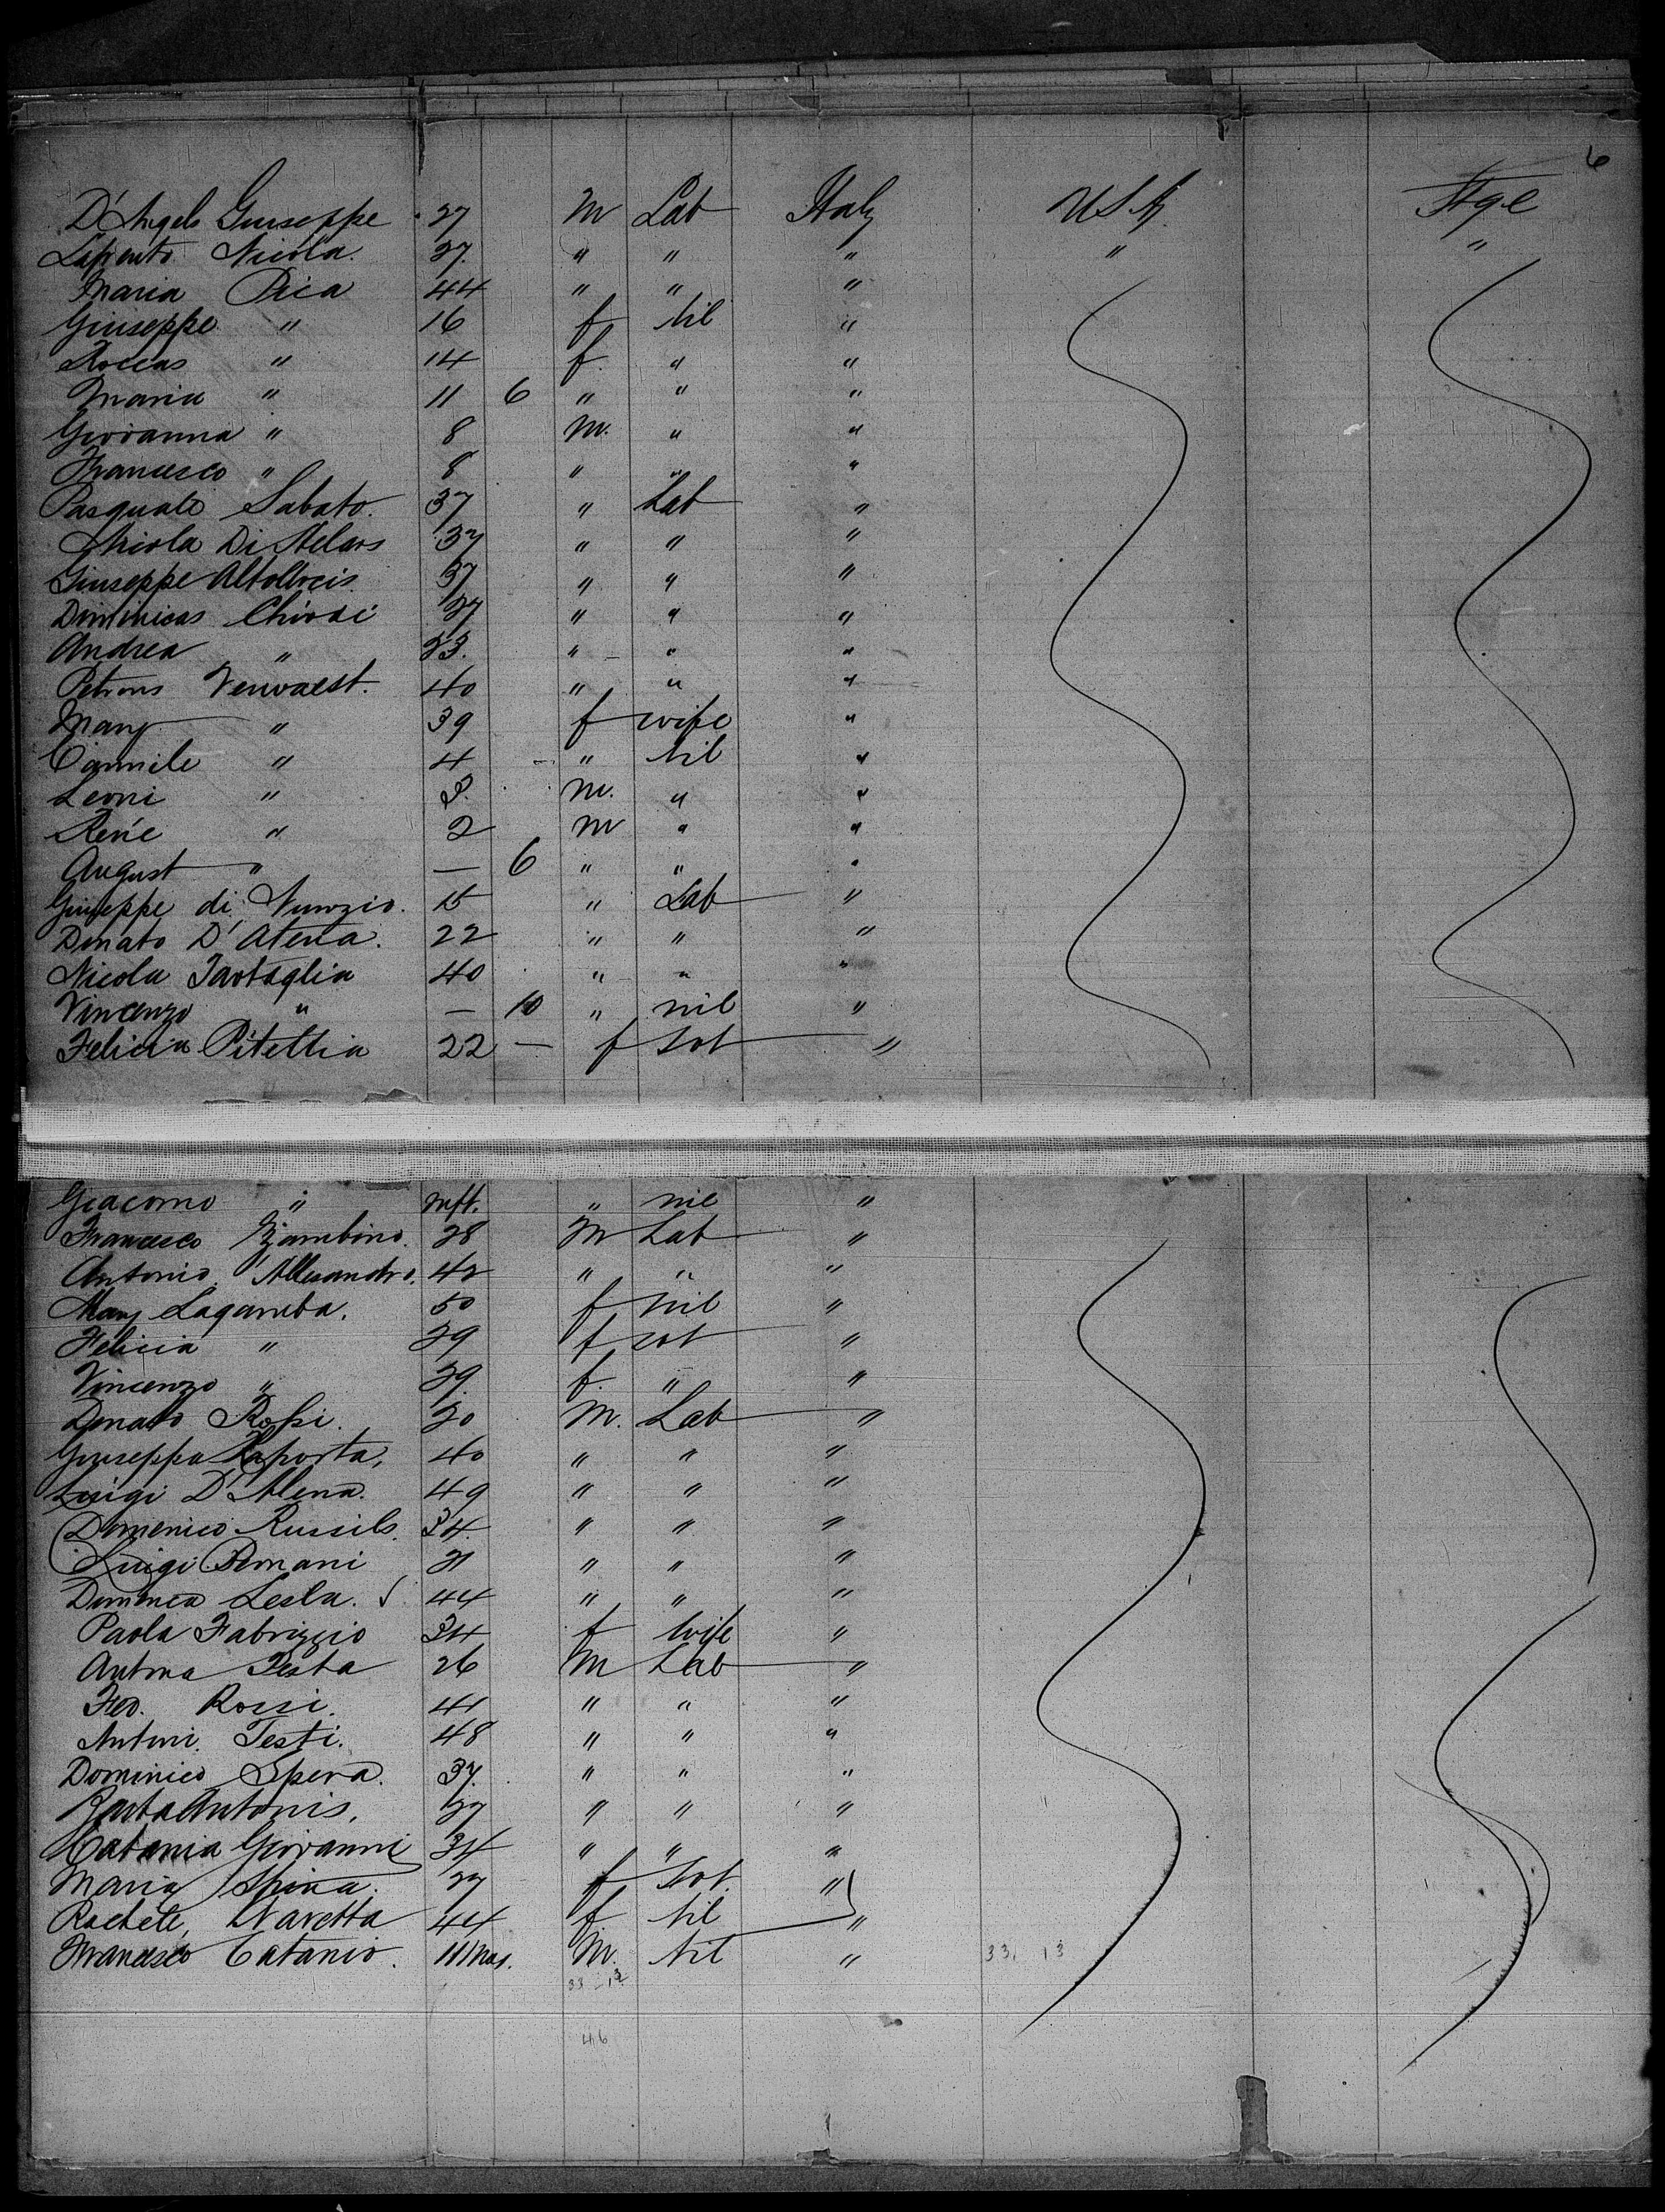 6
D'Angelo Giuseppe 27 M Lab Italy USA Stge
Nicola 27 " " " " "
Maria Pica 44 " " "
Giuseppe " 16 f Nil "
Roccas " 14 f " "
Maria " 11 6 " " "
Giovanna " 8 M. " "
Francesco " 8 " " "
Pasquale Sabato. 37 " Lab "
Di 37 " " "
Giuseppe 37 " " "
Dominicas Chiodi 27 " " "
Andrea " 23. " " "
Petrons Vervaest. 40 " " "
Mary " 39 f wife "
Cammile " 4 " Nil "
Leoni " 3. M. " "
René " 2 M " "
August " — 6 " " "
Giuseppe di Nunzio. 15 " Lab "
Donato D'Atena. 22 " " "
Nicola Tartaglia 40 " " "
Vincenzo " — 10 " nil "
Felicia Pitettia 22 — f "
Giacomo " inft. " nil "
Francesco Zambino. 28 M Lab "
Antonio Allesandro. 42 " " "
Mary Lagamba. 50 f Nil "
Felicia " 29 f "
Vincenzo " 29. f. " "
Donato Rossi. 20 M. Lab "
Giuseppa Laporta, 40 " " "
Luigi D'Alena. 49 " " "
Domenico Russils. 34 " " "
Luigi Romani 21 " " "
Domenco Lesla. 44 " " "
Paola Fabrizzio 34 f Wife "
Antona Testa 26 M Lab "
Feo. Rossi. 41 " " "
Antoni. Testi. 48 " " "
Dominico Spera. 37. " " "
Antonis, 27 " " "
Catania Giovanni 34 " " "
Maria Spina. 27 f "
Rachele, Navetta 44 f Nil "
Francisco Catanio. 11 Mos. M. Nil " 33. 13
33 - 13
46